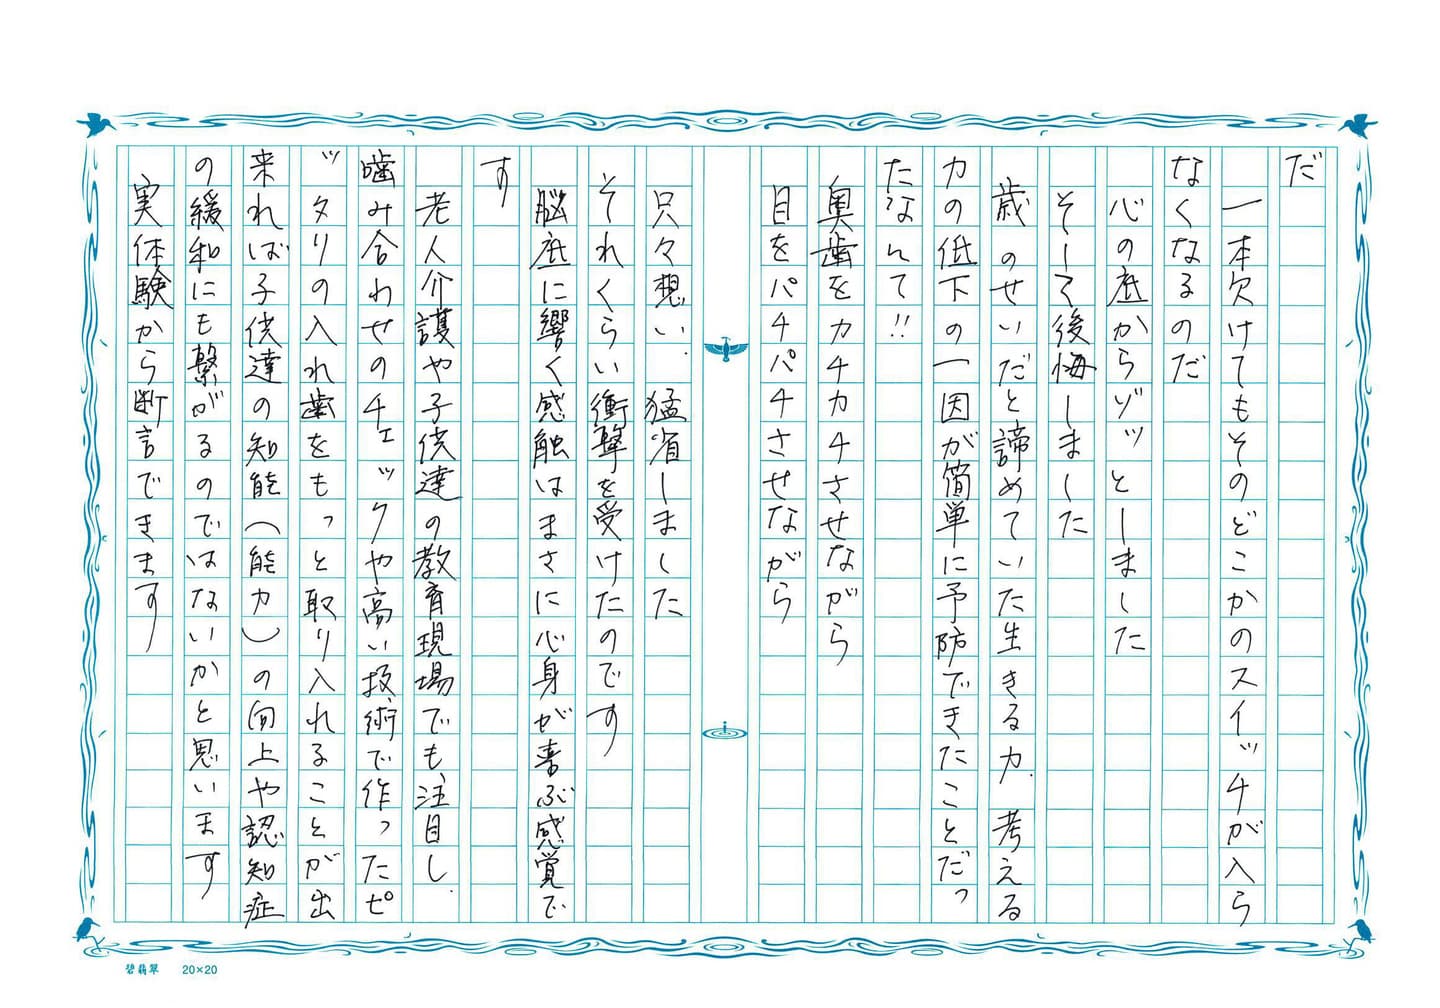 だ
一本欠けてもそのどこかのスイッチが入ら
なくなるのだ
心の底からゾッとしました
そして後悔しました
歳のせいだと諦めていた生きる力、考える
力の低下の一因が簡単に予防できたことだっ
たなんて!!
奥歯をカチカチさせながら
目をパチパチさせながら
只々想い、猛省しました
それくらい衝撃を受けたのです
脳底に響く感触はまさに心身が喜ぶ感覚で
す
老人介護や子供達の教育現場でも注目し、
噛み合わせのチェックや高い技術で作ったピ
ッタリの入れ歯をもっと取り入れることが出
来れば子供達の知能(能力)の向上や認知症
の緩和にも繋がるのではないかと思います
実体験から断言できます
碧翡翠 20×20